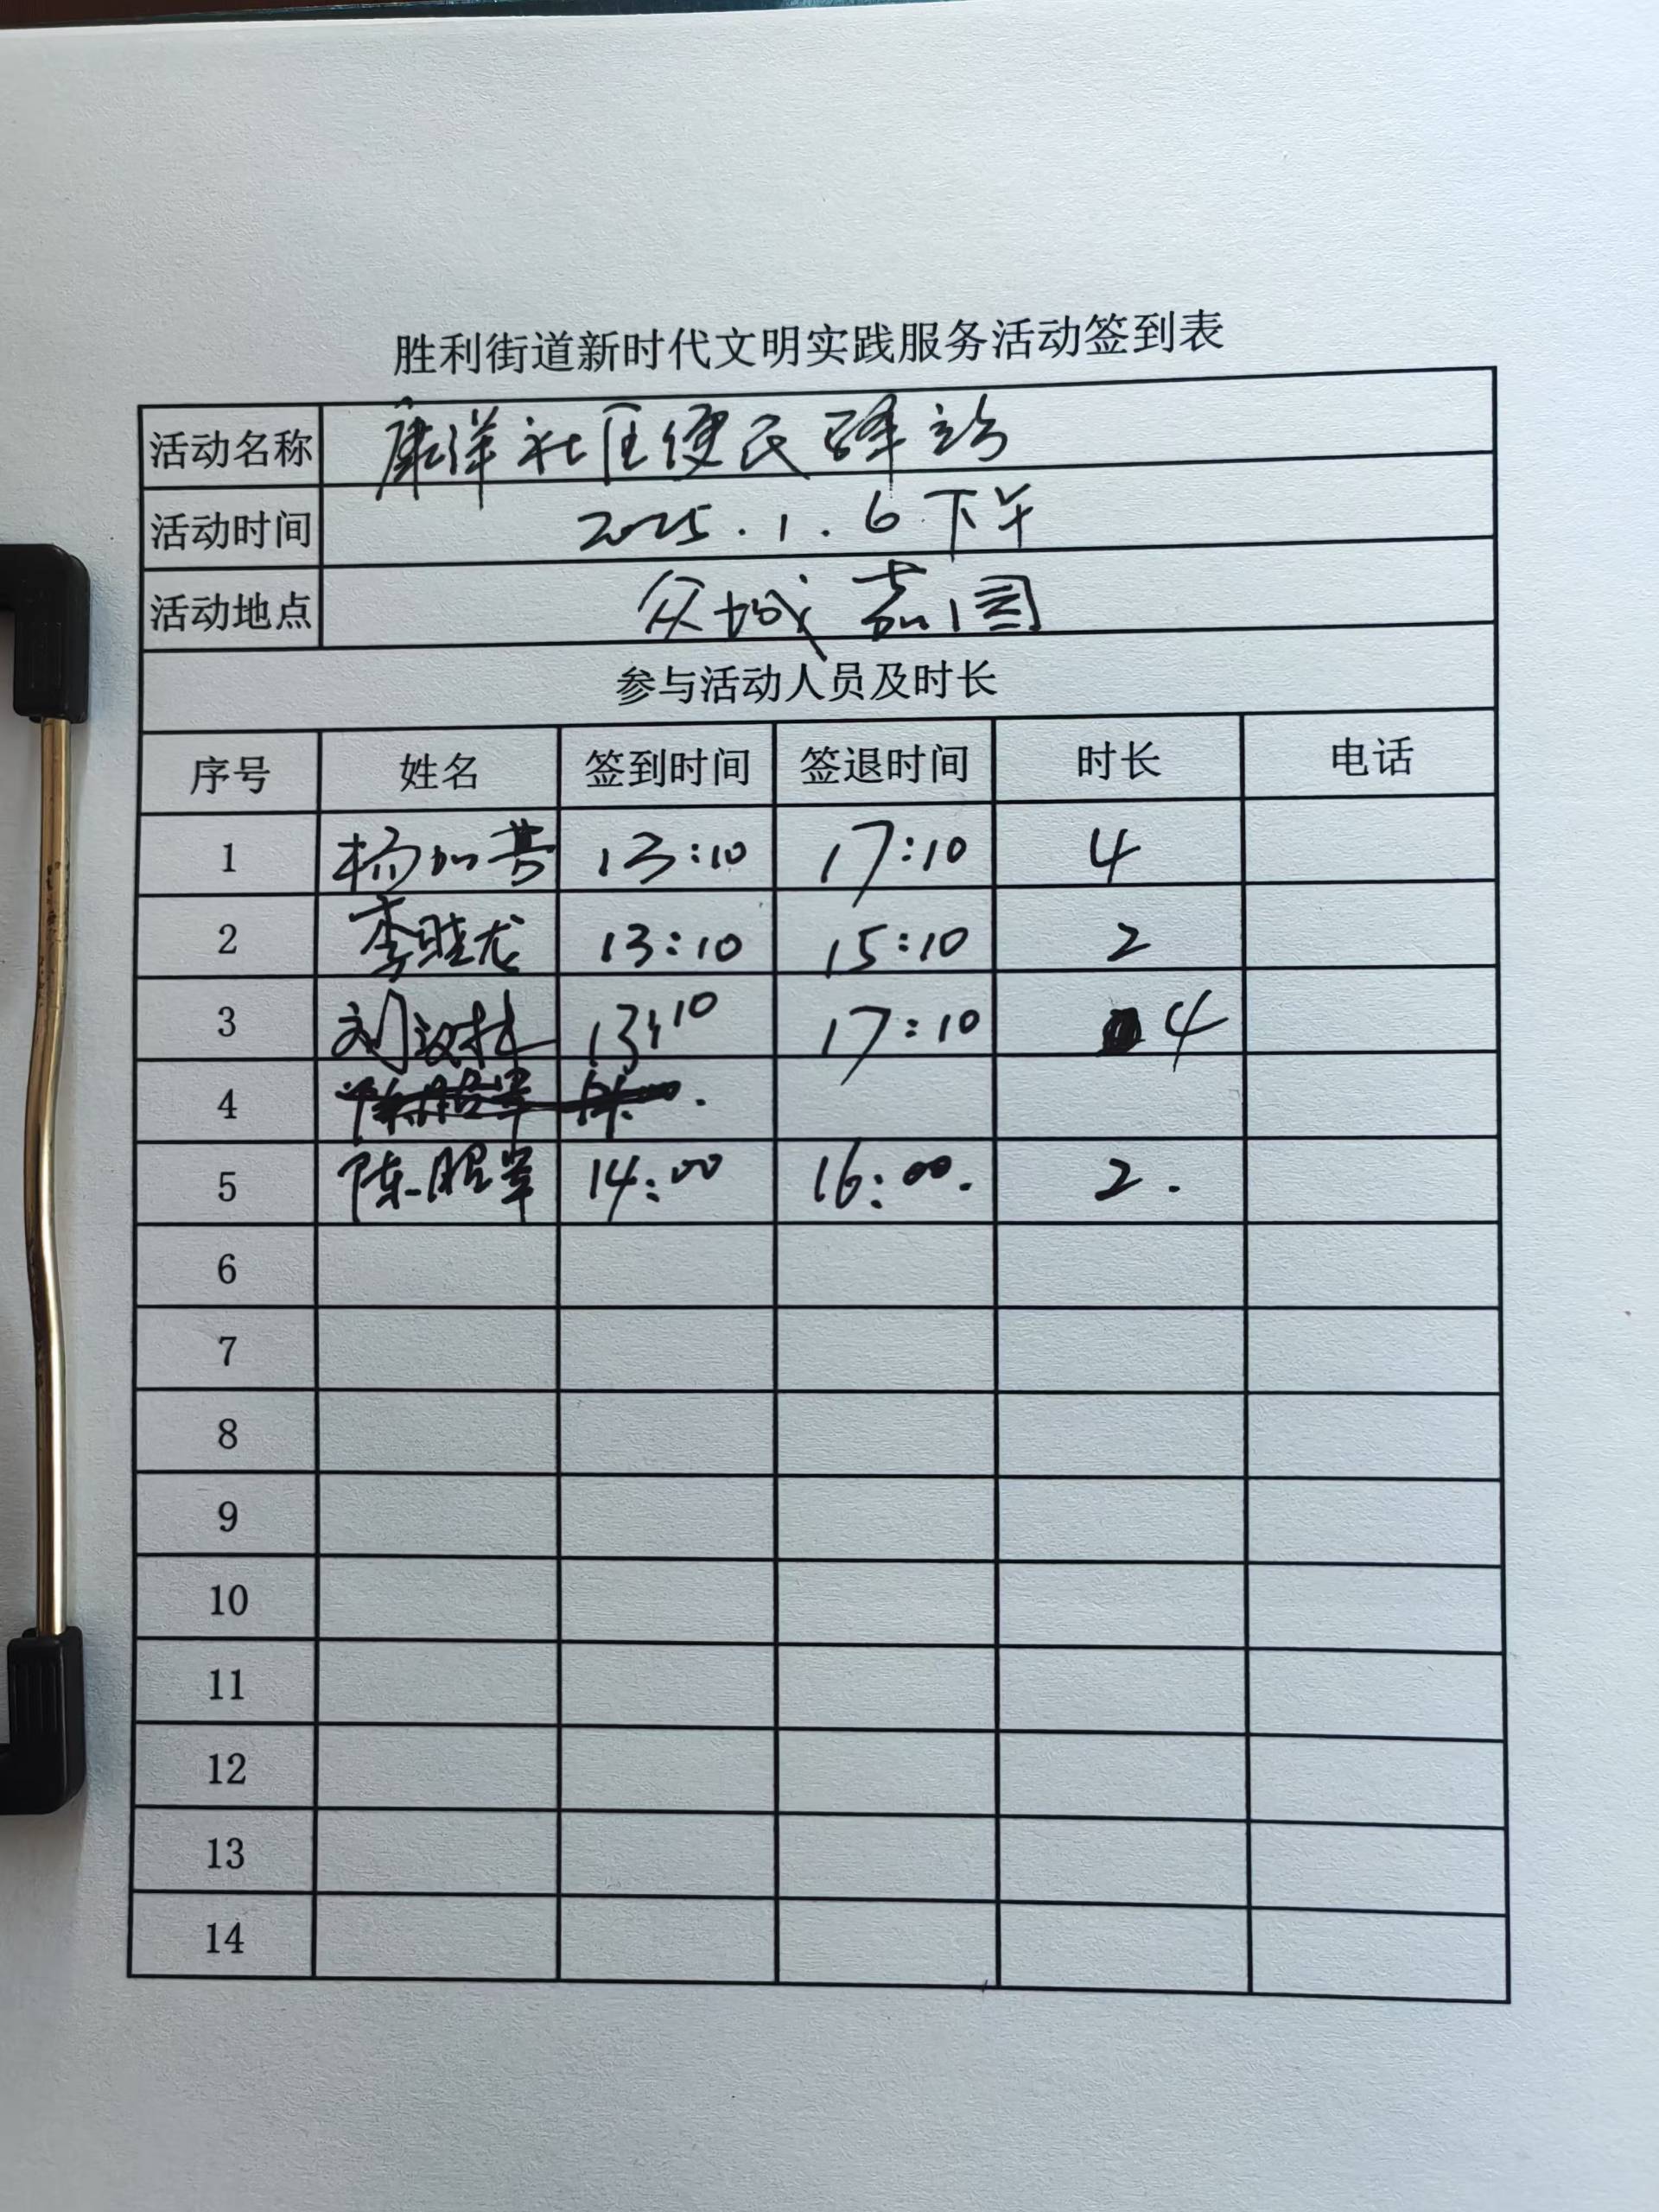 胜利街道新时代文明实践服务活动签到表
活动名称 康洋社区便民驿站
活动时间 2025.1.6下午
活动地点 众城嘉园
参与活动人员及时长
序号 姓名 签到时间 签退时间 时长 电话
1 杨加芳 13:10 17:10 4
2 李晓龙 13:10 15:10 2
3 刘 13:10 17:10 4
4
5 陈昭军 14:00 16:00. 2.
6
7
8
9
10
11
12
13
14